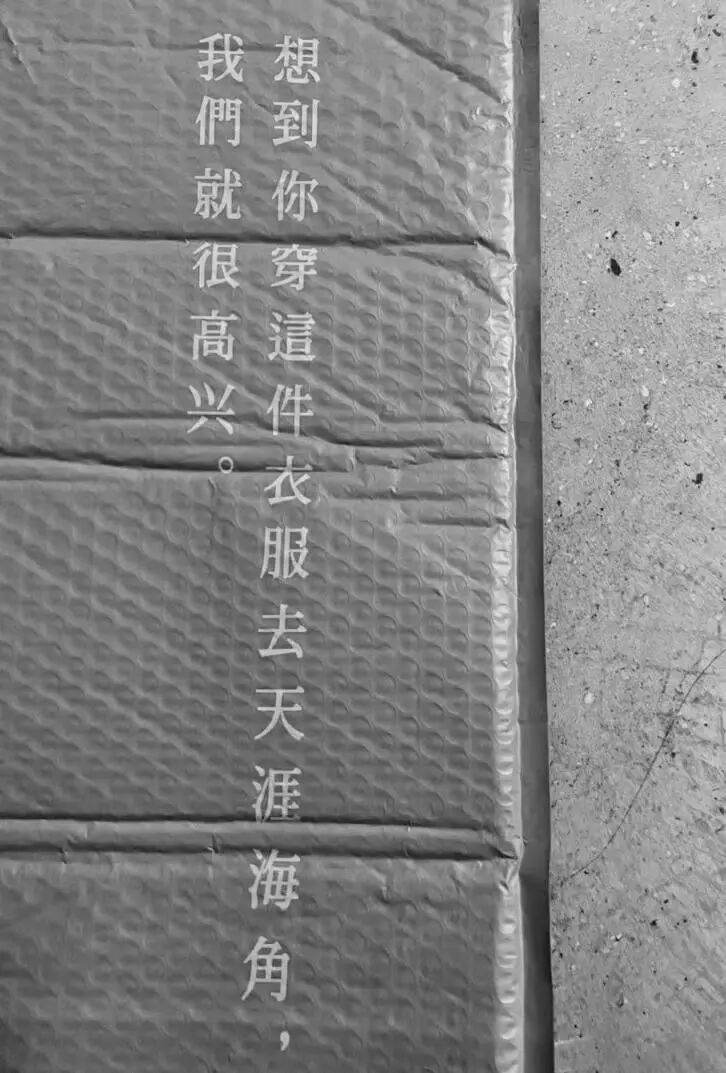 想到你穿這件衣服去天涯海角，
我們就很高兴。